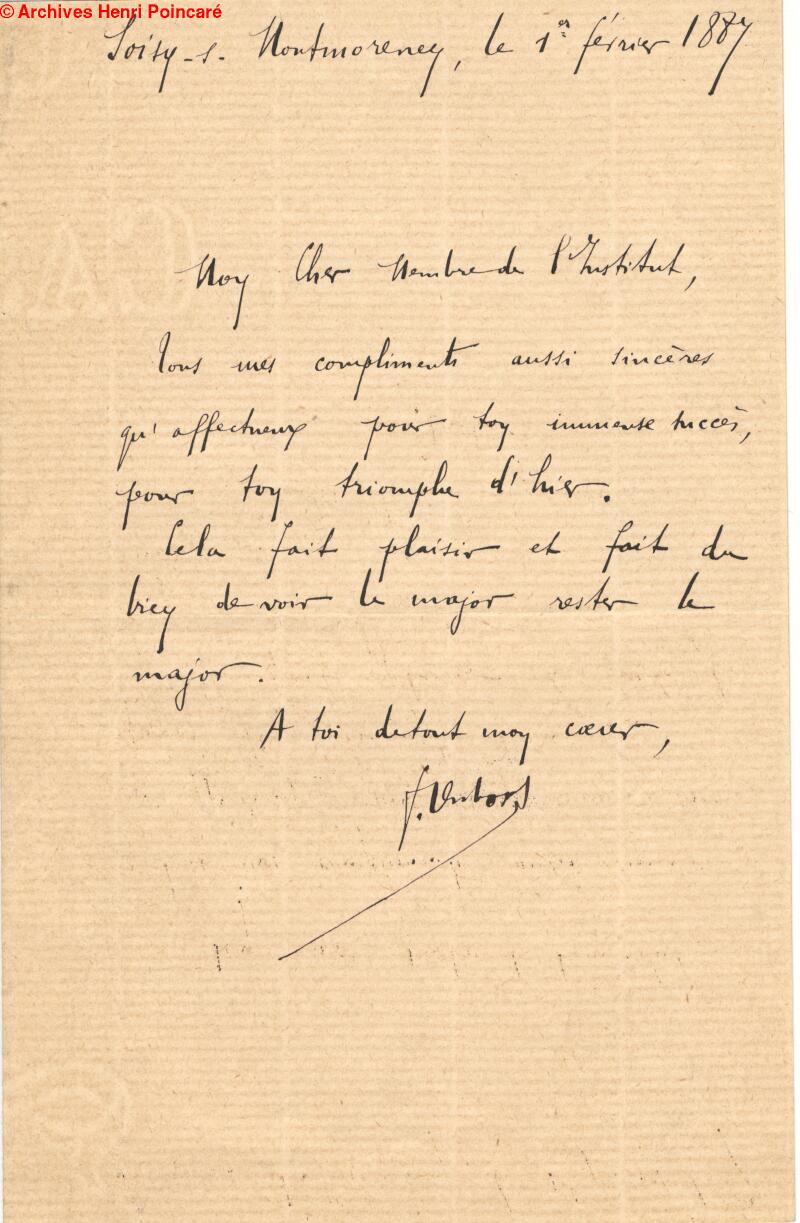 © Archives Henri Poincaré
Soisy-s. Montmorency, le 1er février 1887
Mon Cher Membre de l'Institut,
Tous mes compliments aussi sincères
qu'affectueux pour ton immense succès,
pour ton triomphe d'hier.
Cela fait plaisir et fait du
bien de voir le major rester le
major.
A toi de tout mon cœur,